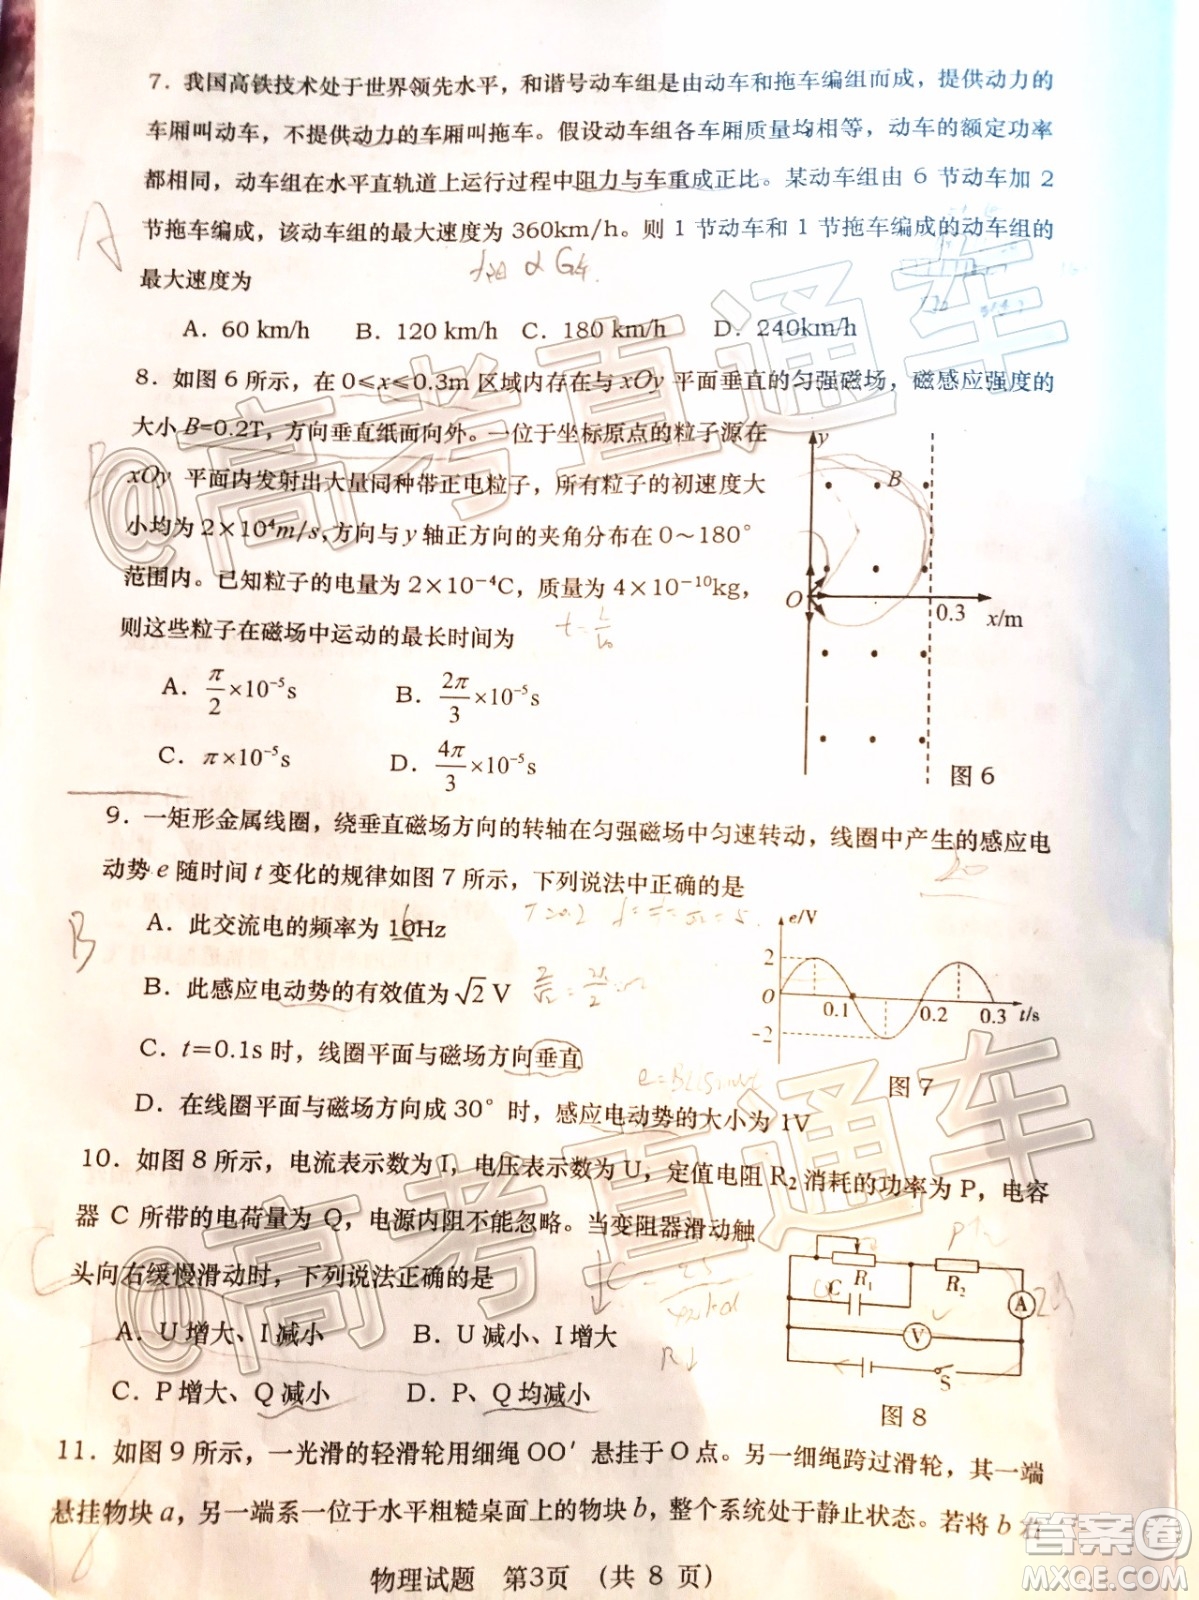 7．我国高铁技术处于世界领先水平，和谐号动车组是由动车和拖车编组而成，提供动力的
车厢叫动车，不提供动力的车厢叫拖车。假设动车组各车厢质量均相等，动车的额定功率
都相同，动车组在水平直轨道上运行过程中阻力与车重成正比。某动车组由 6 节动车加 2
节拖车编成，该动车组的最大速度为 360km/h。则 1 节动车和 1 节拖车编成的动车组的
最大速度为
A
f阻 ∝ G车
A．60 km/h B．120 km/h C．180 km/h D．240km/h
8．如图 6 所示，在 0≤x≤0.3m 区域内存在与 xOy 平面垂直的匀强磁场，磁感应强度的
大小 B=0.2T，方向垂直纸面向外。一位于坐标原点的粒子源在
xOy 平面内发射出大量同种带正电粒子，所有粒子的初速度大
小均为 2×10⁴m/s，方向与 y 轴正方向的夹角分布在 0～180°
范围内。已知粒子的电量为 2×10⁻⁴C，质量为 4×10⁻¹⁰kg，
则这些粒子在磁场中运动的最长时间为
A．π/2×10⁻⁵s B．2π/3×10⁻⁵s
C．π×10⁻⁵s D．4π/3×10⁻⁵s
y
B
O
0.3
x/m
图 6
9．一矩形金属线圈，绕垂直磁场方向的转轴在匀强磁场中匀速转动，线圈中产生的感应电
动势 e 随时间 t 变化的规律如图 7 所示，下列说法中正确的是
B
A．此交流电的频率为 10Hz
B．此感应电动势的有效值为 √2 V
C．t＝0.1s 时，线圈平面与磁场方向垂直
D．在线圈平面与磁场方向成 30°时，感应电动势的大小为 1V
e/V
2
O
-2
0.1
0.2
0.3
t/s
图 7
10．如图 8 所示，电流表示数为 I，电压表示数为 U，定值电阻 R₂ 消耗的功率为 P，电容
器 C 所带的电荷量为 Q，电源内阻不能忽略。当变阻器滑动触
头向右缓慢滑动时，下列说法正确的是
C
A．U 增大、I 减小 B．U 减小、I 增大
C．P 增大、Q 减小 D．P、Q 均减小
R↓
R₁
R₂
C
A
V
S
图 8
11．如图 9 所示，一光滑的轻滑轮用细绳 OO′悬挂于 O 点。另一细绳跨过滑轮，其一端
悬挂物块 a，另一端系一位于水平粗糙桌面上的物块 b，整个系统处于静止状态。若将 b 右
物理试题 第3页 （共 8 页）
@高考直通车
@高考直通车
答案圈
MXQE.COM